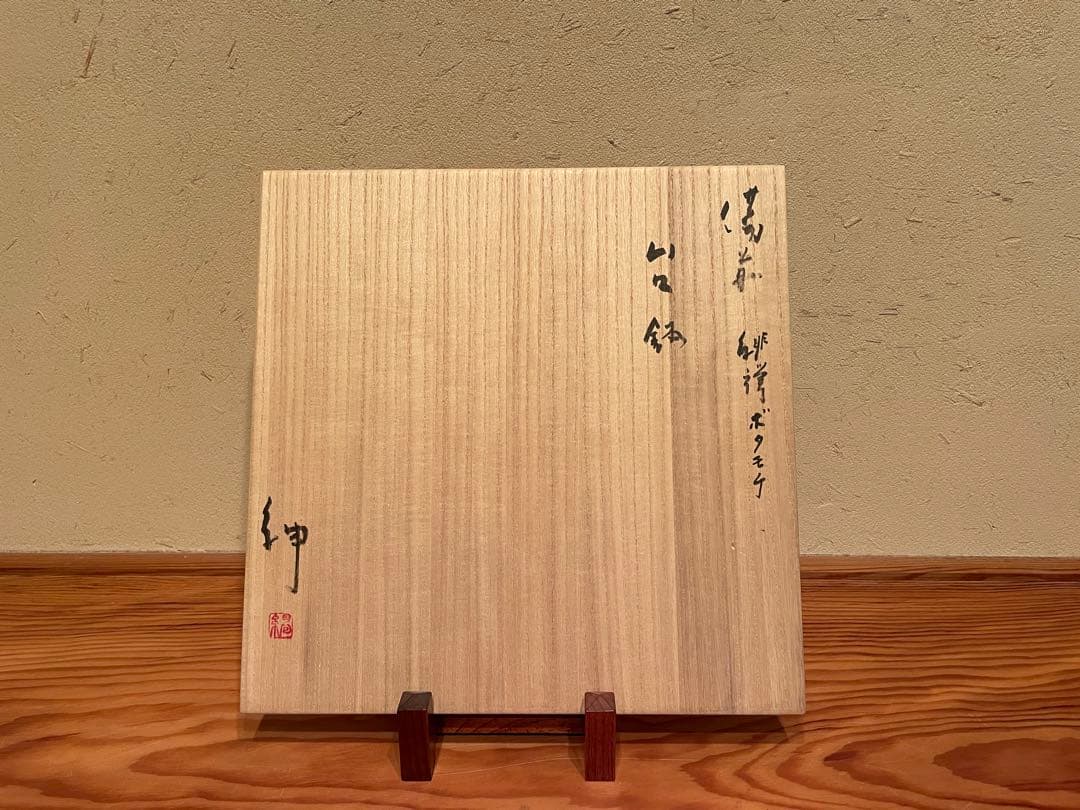 備前 緋襷ボタモチ
台鉢
紳